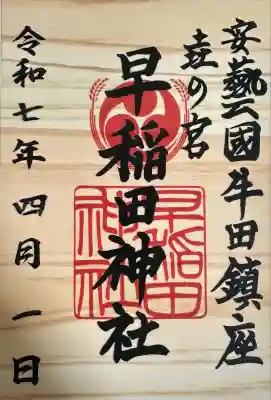 安藝國牛田鎮座
壹の宮
早稲田神社
令和七年四月一日
早稲田
神社